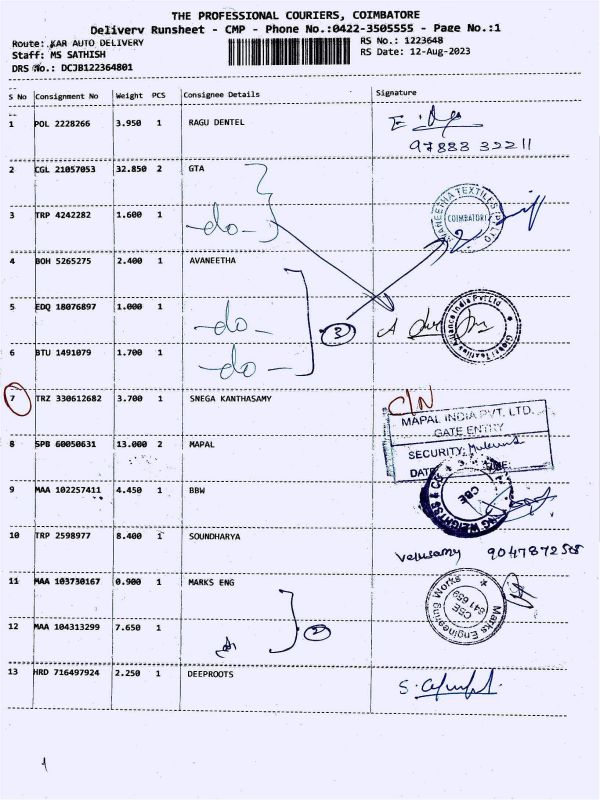 THE PROFESSIONAL COURIERS, COIMBATORE
Delivery Runsheet - CMP - Phone No.:0422-3505555 - Page No.:1
Route: KAR AUTO DELIVERY RS No.: 1223648
Staff: MS SATHISH RS Date: 12-Aug-2023
DRS No.: DCJB122364801
S No Consignment No Weight PCS Consignee Details Signature
1 POL 2228266 3.950 1 RAGU DENTEL
97888 32211
2 CGL 21057053 32.850 2 GTA
3 TRP 4242282 1.600 1 -do-
COIMBATORE
4 BOH 5265275 2.400 1 AVANEETHA
5 EDQ 18076897 1.000 1 -do-
3
Global Textiles Alliance India Pvt Ltd
6 BTU 1491079 1.700 1 -do-
7 TRZ 330612682 3.700 1 SNEGA KANTHASAMY C/N
MAPAL INDIA PVT. LTD.
GATE ENTRY
8 SPB 60050631 13.000 2 MAPAL
SECURITY:
DATE
9 MAA 102257411 4.450 1 BBW
CBE
10 TRP 2598977 8.400 1 SOUNDHARYA
Velusamy
11 MAA 103730167 0.900 1 MARKS ENG
Marks Engineering Works
CBE
641 659
12 MAA 104313299 7.650 1
2
13 HRD 716497924 2.250 1 DEEPROOTS